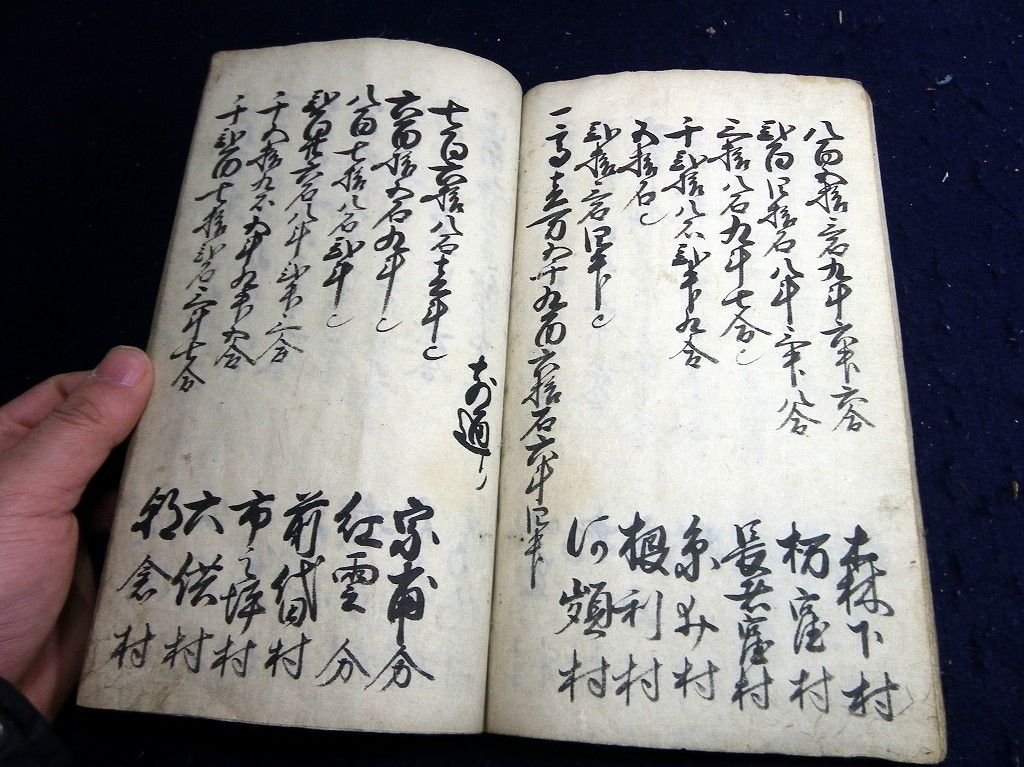 八百五拾三石九斗六升六合 森下村
弐百四拾石八斗三升八合 栃窪村
三拾八石九斗七合 長者窪村
千弐拾八石弐斗弐升九合 糸井村
五拾石 根利村
弐拾三石四斗 河額村
一高壱万五千九百六拾石六斗四升
南通り
七百六拾八石壱斗 宗甫分
六百拾五石九斗 紅雲分
八百七拾八石弐斗 前代田村
弐百廿六石八斗弐升三合 市之坪村
千五拾九石五斗九升五合 六供村
千弐百七拾弐石三斗七合 朝倉村